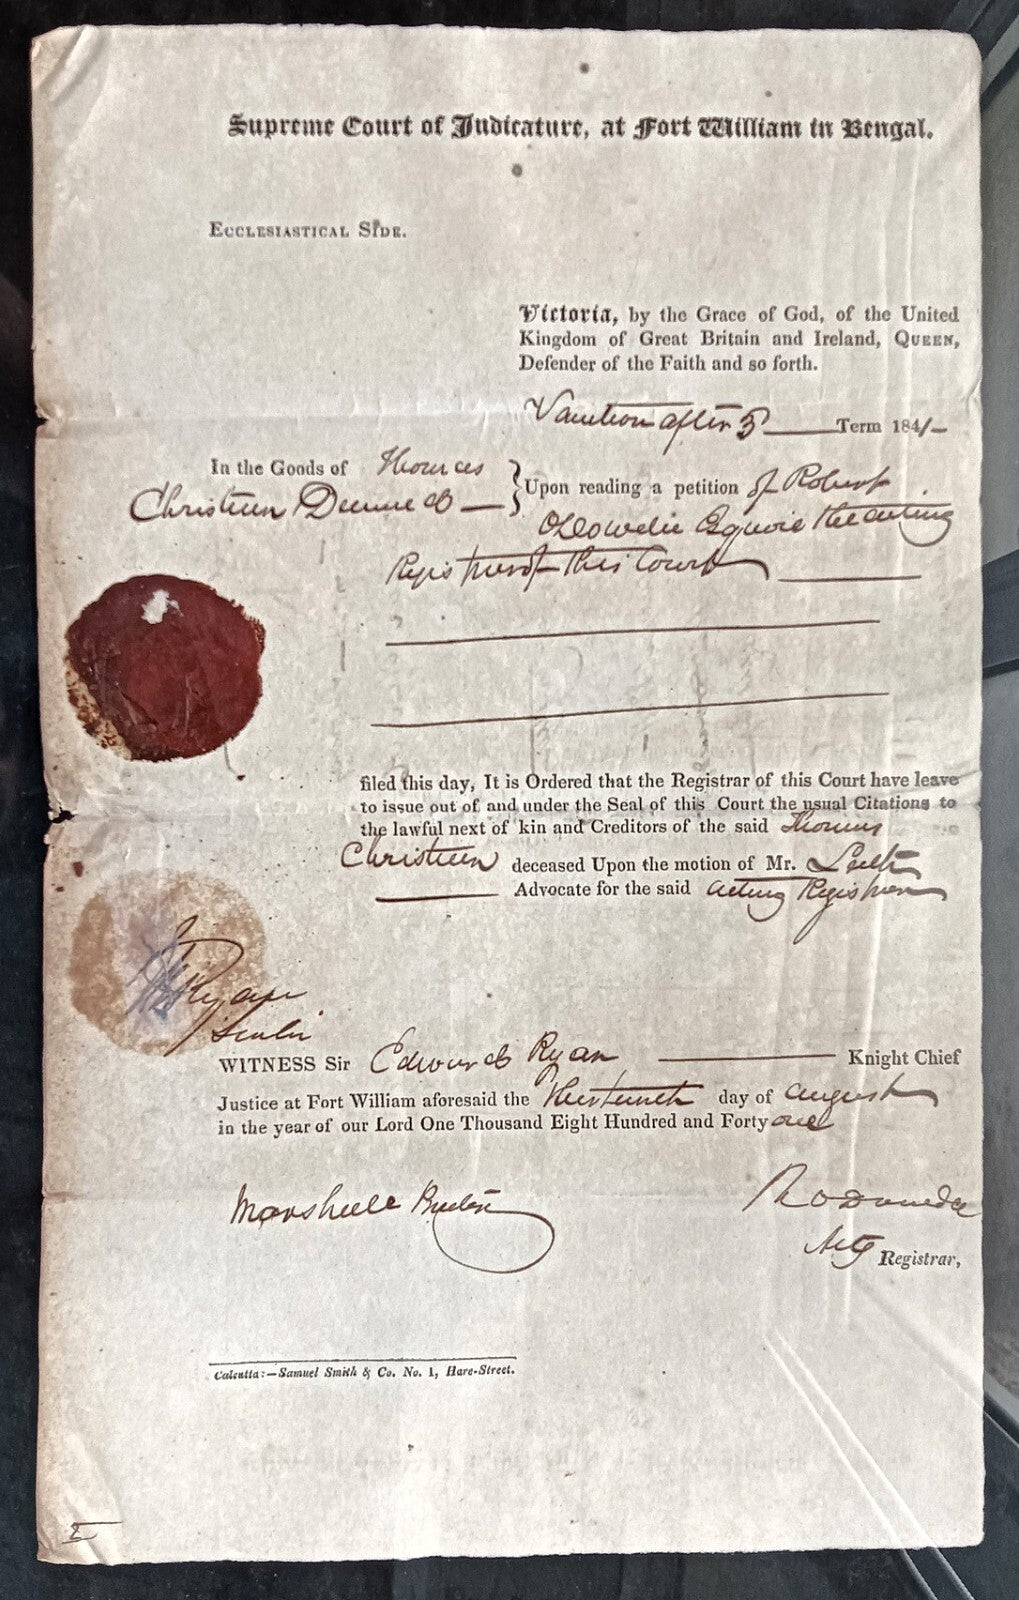 Supreme Court of Judicature, at Fort William in Bengal.
Ecclesiastical Side.
Victoria, by the Grace of God, of the United
Kingdom of Great Britain and Ireland, Queen,
Defender of the Faith and so forth.
after 3 Term 1841
In the Goods of Thomas
Christian Deceased
Upon reading a petition of Robert
Esquire the acting
Registrar of this Court
filed this day, It is Ordered that the Registrar of this Court have leave
to issue out of and under the Seal of this Court the usual Citations to
the lawful next of kin and Creditors of the said Thomas
Christian deceased Upon the motion of Mr. Leith
Advocate for the said acting Registrar
Ryan
WITNESS Sir Edward Ryan Knight Chief
Justice at Fort William aforesaid the thirteenth day of August
in the year of our Lord One Thousand Eight Hundred and Forty one
Marshall
Actg Registrar,
Calcutta:—Samuel Smith & Co. No. 1, Hare-Street.